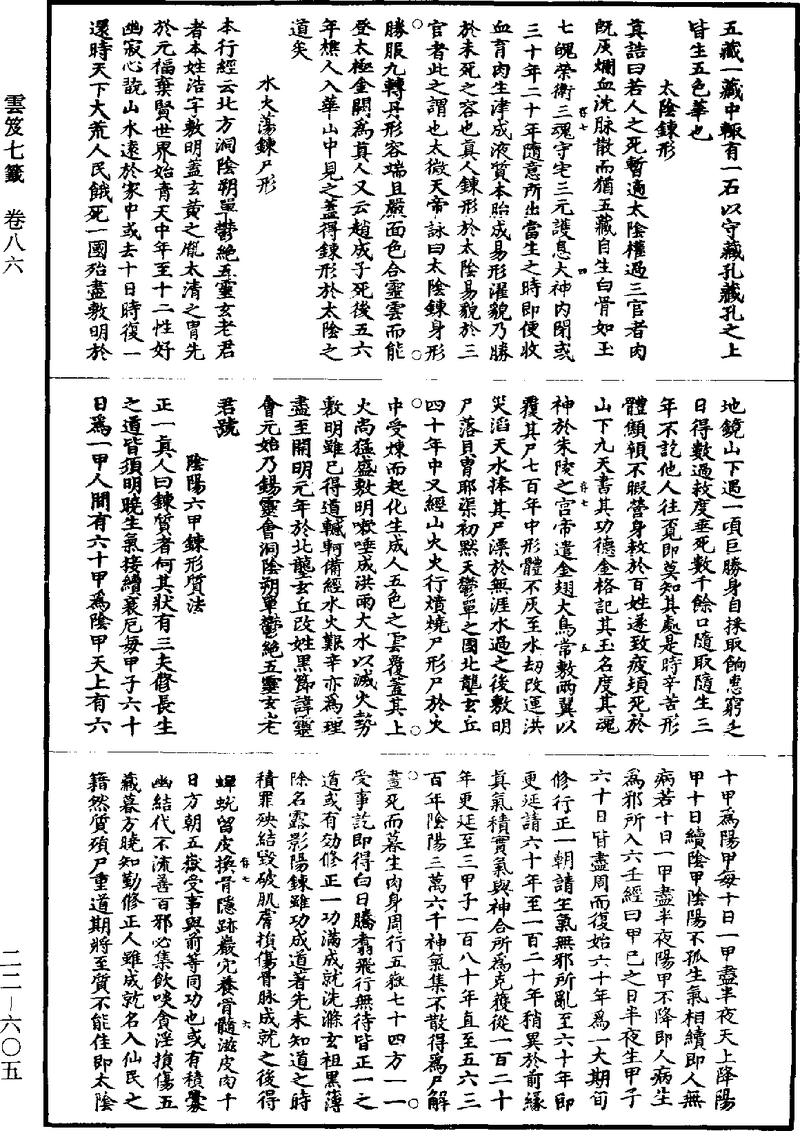 雲笈七籤　卷八六
五藏一藏中輒有一石以守藏孔藏孔之上
皆生五色華也
太陰鍊形
真誥曰若人之死暫適太陰權過三官者肉
既灰爛血沈脉散而猶五藏自生白骨如玉
七魄榮衛三魂守宅三元護息太神内閉或
三十年二十年隨意所出當生之時即便收
血育肉生津成液質本胎成易形濯貌乃勝
於未死之容也真人鍊形於太陰易貌於三
官者此之謂也太微天帝詠曰太陰鍊身形
勝服九轉丹形容端且嚴面色合靈雲而能
登太極金闕爲真人又云趙成子死後五六
年樵人入華山中見之蓋得鍊形於太陰之
道矣
水火蕩鍊尸形
本行經云北方洞陰朔單鬱絶五靈玄老君
者本姓浩字敷明蓋玄黄之胤太清之胄先
於元福棄賢世界始青天中年至十二性好
幽寂心訪山水遠於家中或去十日時復一
還時天下大荒人民餓死一國殆盡敷明於
地鏡山下遇一頃巨勝身自採取餉惠窮乏
日得數過救度垂死數千餘口隨取隨生三
年不訖他人往覓即莫知其處是時辛苦形
體顦顇不暇營身救於百姓遂致疲頓死於
山下九天書其功德金格記其玉名度其魂
神於朱陵之宫帝遣金翅大鳥常敷兩翼以
覆其尸七百年中形體不灰至水劫改運洪
災滔天水捧其尸漂於無涯水過之後敷明
尸落貝胄耶渠初默天鬱單之國北壟玄丘
四十年中又經山火火行燌燒尸形尸於火
中受煉而起化生成人五色之雲覆蓋其上
火尚猛盛敷明嗽唾成洪雨大水以滅火勢
敷明雖已得道轗軻備經水火艱辛亦爲理
盡至開明元年於北壟玄丘改姓黑節諱靈
會元始乃錫靈會洞陰朔單鬱絶五靈玄老
君號
陰陽六甲鍊形質法
正一真人曰鍊質者何其狀有三夫脩長生
之道皆須明曉生氣接續衰厄每甲子六十
日爲一甲人間有六十甲爲陰甲天上有六
十甲爲陽甲每十日一甲盡半夜天上降陽
甲十日續陰甲陰陽不孤生氣相續即人無
病若十日一甲盡半夜陽甲不降即人病生
爲邪所入六壬經曰甲巳之日半夜生甲子
六十日皆盡周而復始六十年爲一大期旬
修行正一朝請生氣無邪所亂至六十年即
更延請六十年至一百二十年稍異於前緣
真氣積實氣與神合所爲克獲從一百二十
年更延至三甲子一百八十年直至五六三
百年陰陽三萬六千神氣集不散得爲尸解
晝死而暮生肉身周行五嶽七十四方一一
受事訖即得白日騰翥飛行無待皆正一之
道或有効修正一功滿成就洗滌玄祖黑薄
除名露影陽錬雖功成道著先未知道之時
積罪殃結毀破肌膚損傷骨脉成就之後得
蟬蛻留皮換骨隱跡巖穴養骨髓滋皮肉千
日方朝五嶽受事與前等同功也或有積釁
幽結代不流善百邪必集飲啖貪淫損傷五
藏暮方曉知勤修正人雖成就名入仙民之
籍然質殞尸重道期將至質不能佳即太陰
二二－六〇五